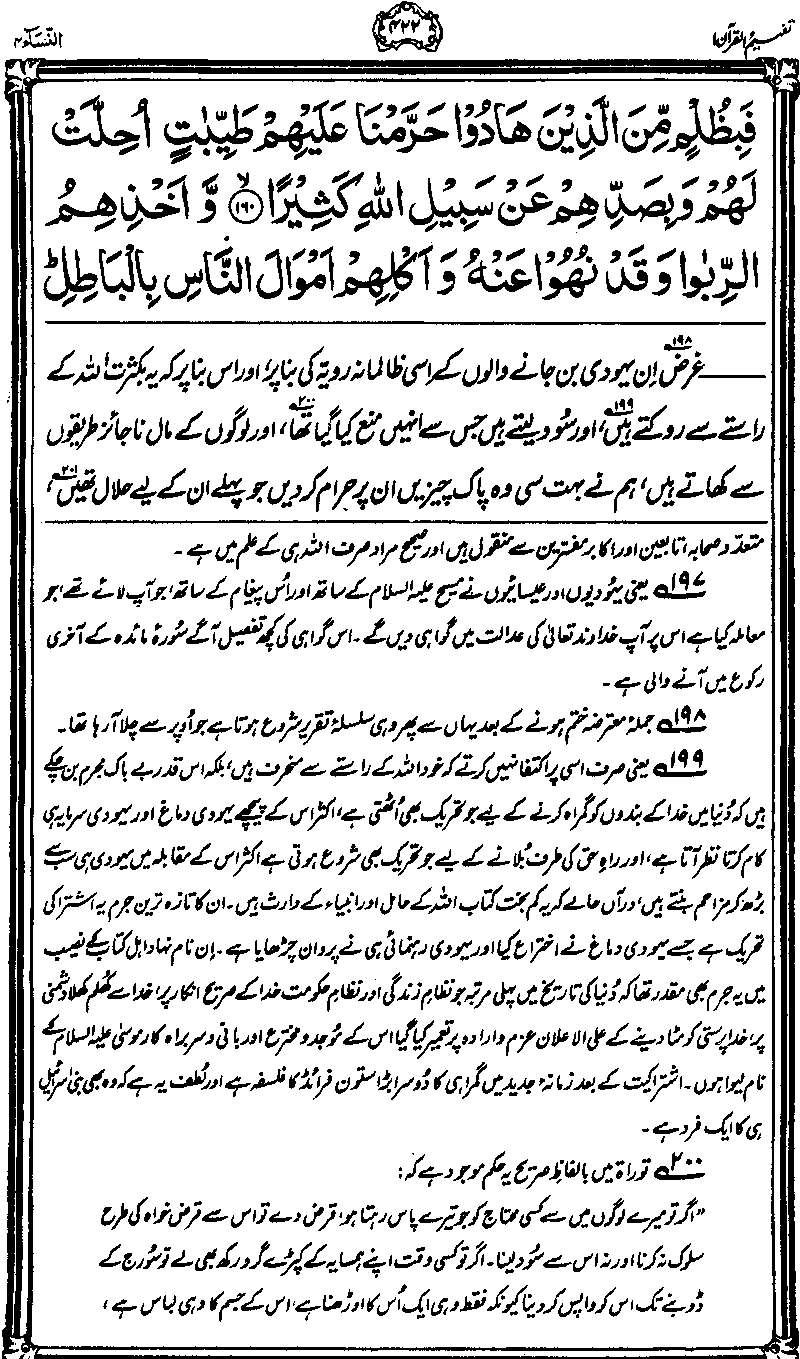 تفہیم القرآن ۱
۴۲۲
النّسآء ۴
فَبِظُلْمٍ مِّنَ الَّذِیْنَ هَادُوْا حَرَّمْنَا عَلَیْهِمْ طَیِّبٰتٍ اُحِلَّتْ
لَهُمْ وَ بِصَدِّهِمْ عَنْ سَبِیْلِ اللّٰهِ كَثِیْرًا ﴿۱۶۰﴾ۙ وَّ اَخْذِهِمُ
الرِّبٰوا وَ قَدْ نُهُوْا عَنْهُ وَ اَكْلِهِمْ اَمْوَالَ النَّاسِ بِالْبَاطِلِؕ
غرض۱۹۸ اِن یہودی بن جانے والوں کے اسی ظالمانہ رویّہ کی بنا پر، اور اس بنا پر کہ یہ بکثرت اللہ کے
راستے سے روکتے ہیں۱۹۹، اور سُود لیتے ہیں جس سے انہیں منع کیا گیا تھا۲۰۰، اور لوگوں کے مال ناجائز طریقوں
سے کھاتے ہیں، ہم نے بہت سی وہ پاک چیزیں ان پر حرام کر دیں جو پہلے ان کے لیے حلال تھیں۲۰۱،
متعدّد صحابہ، تابعین اور اکابر مفسّرین سے منقول ہیں اور صحیح مراد صرف اللہ ہی کے علم میں ہے۔
۱۹۷ یعنی یہُودیوں اور عیسائیوں نے مسیح علیہ السلام کے ساتھ اور اُس پیغام کے ساتھ، جو آپ لائے تھے، جو
معاملہ کیا ہے اس پر آپ خداوند تعالیٰ کی عدالت میں گواہی دیں گے۔ اس گواہی کی کچھ تفصیل آگے سُورۂ مائدہ کے آخری
رکوع میں آنے والی ہے۔
۱۹۸ جملۂ معترضہ ختم ہونے کے بعد یہاں سے پھر وہی سلسلۂ تقریر شروع ہوتا ہے جو اُوپر سے چلا آ رہا تھا۔
۱۹۹ یعنی صرف اسی پر اکتفا نہیں کرتے کہ خود اللہ کے راستے سے منحرف ہیں، بلکہ اس قدر بے باک مجرم بن چکے
ہیں کہ دُنیا میں خدا کے بندوں کو گمراہ کرنے کے لیے جو تحریک بھی اُٹھتی ہے، اکثر اس کے پیچھے یہودی دماغ اور یہودی سرمایہ ہی
کام کرتا نظر آتا ہے، اور راہِ حق کی طرف بُلانے کے لیے جو تحریک بھی شروع ہوتی ہے اکثر اس کے مقابلہ میں یہودی ہی سب سے
بڑھ کر مزاحم بنتے ہیں، درآں حالے کہ یہ کم بخت کتاب اللہ کے حامل اور انبیاء کے وارث ہیں۔ ان کا تازہ ترین جرم یہ اشتراکی
تحریک ہے جسے یہودی دماغ نے اختراع کیا اور یہودی رہنمائی ہی نے پروان چڑھایا ہے۔ اِن نام نہاد اہل کتاب کے نصیب
میں یہ جرم بھی مقدر تھا کہ دُنیا کی تاریخ میں پہلی مرتبہ جو نظامِ زندگی اور نظامِ حکومت خدا کے صریح انکار پر، خدا سے کُھلم کھلا دشمنی
پر، خدا پرستی کو مٹا دینے کے علی الاعلان عزم و ارادہ پر تعمیر کیا گیا اس کے مُوجد و مخترع اور بانی و سربراہ کار موسیٰ علیہ السلام کے
نام لیوا ہوں۔ اشتراکیت کے بعد زمانۂ جدید میں گمراہی کا دُوسرا بڑا ستون فرائڈ کا فلسفہ ہے اور لُطف یہ ہے کہ وہ بھی بنی اسرائیل
ہی کا ایک فرد ہے۔
۲۰۰ توراۃ میں بالفاظِ صریح یہ حکم موجود ہے کہ:
”اگر تو میرے لوگوں میں سے کسی محتاج کو جو تیرے پاس رہتا ہو، قرض دے تو اس سے قرض خواہ کی طرح
سلوک نہ کرنا اور نہ اس سے سُود لینا۔ اگر تو کسی وقت اپنے ہمسایہ کے کپڑے گرو رکھ بھی لے تو سُورج کے
ڈوبنے تک اس کو واپس کر دینا کیونکہ فقط وہی ایک اُس کا اوڑھنا ہے، اس کے جسم کا وہی لباس ہے،